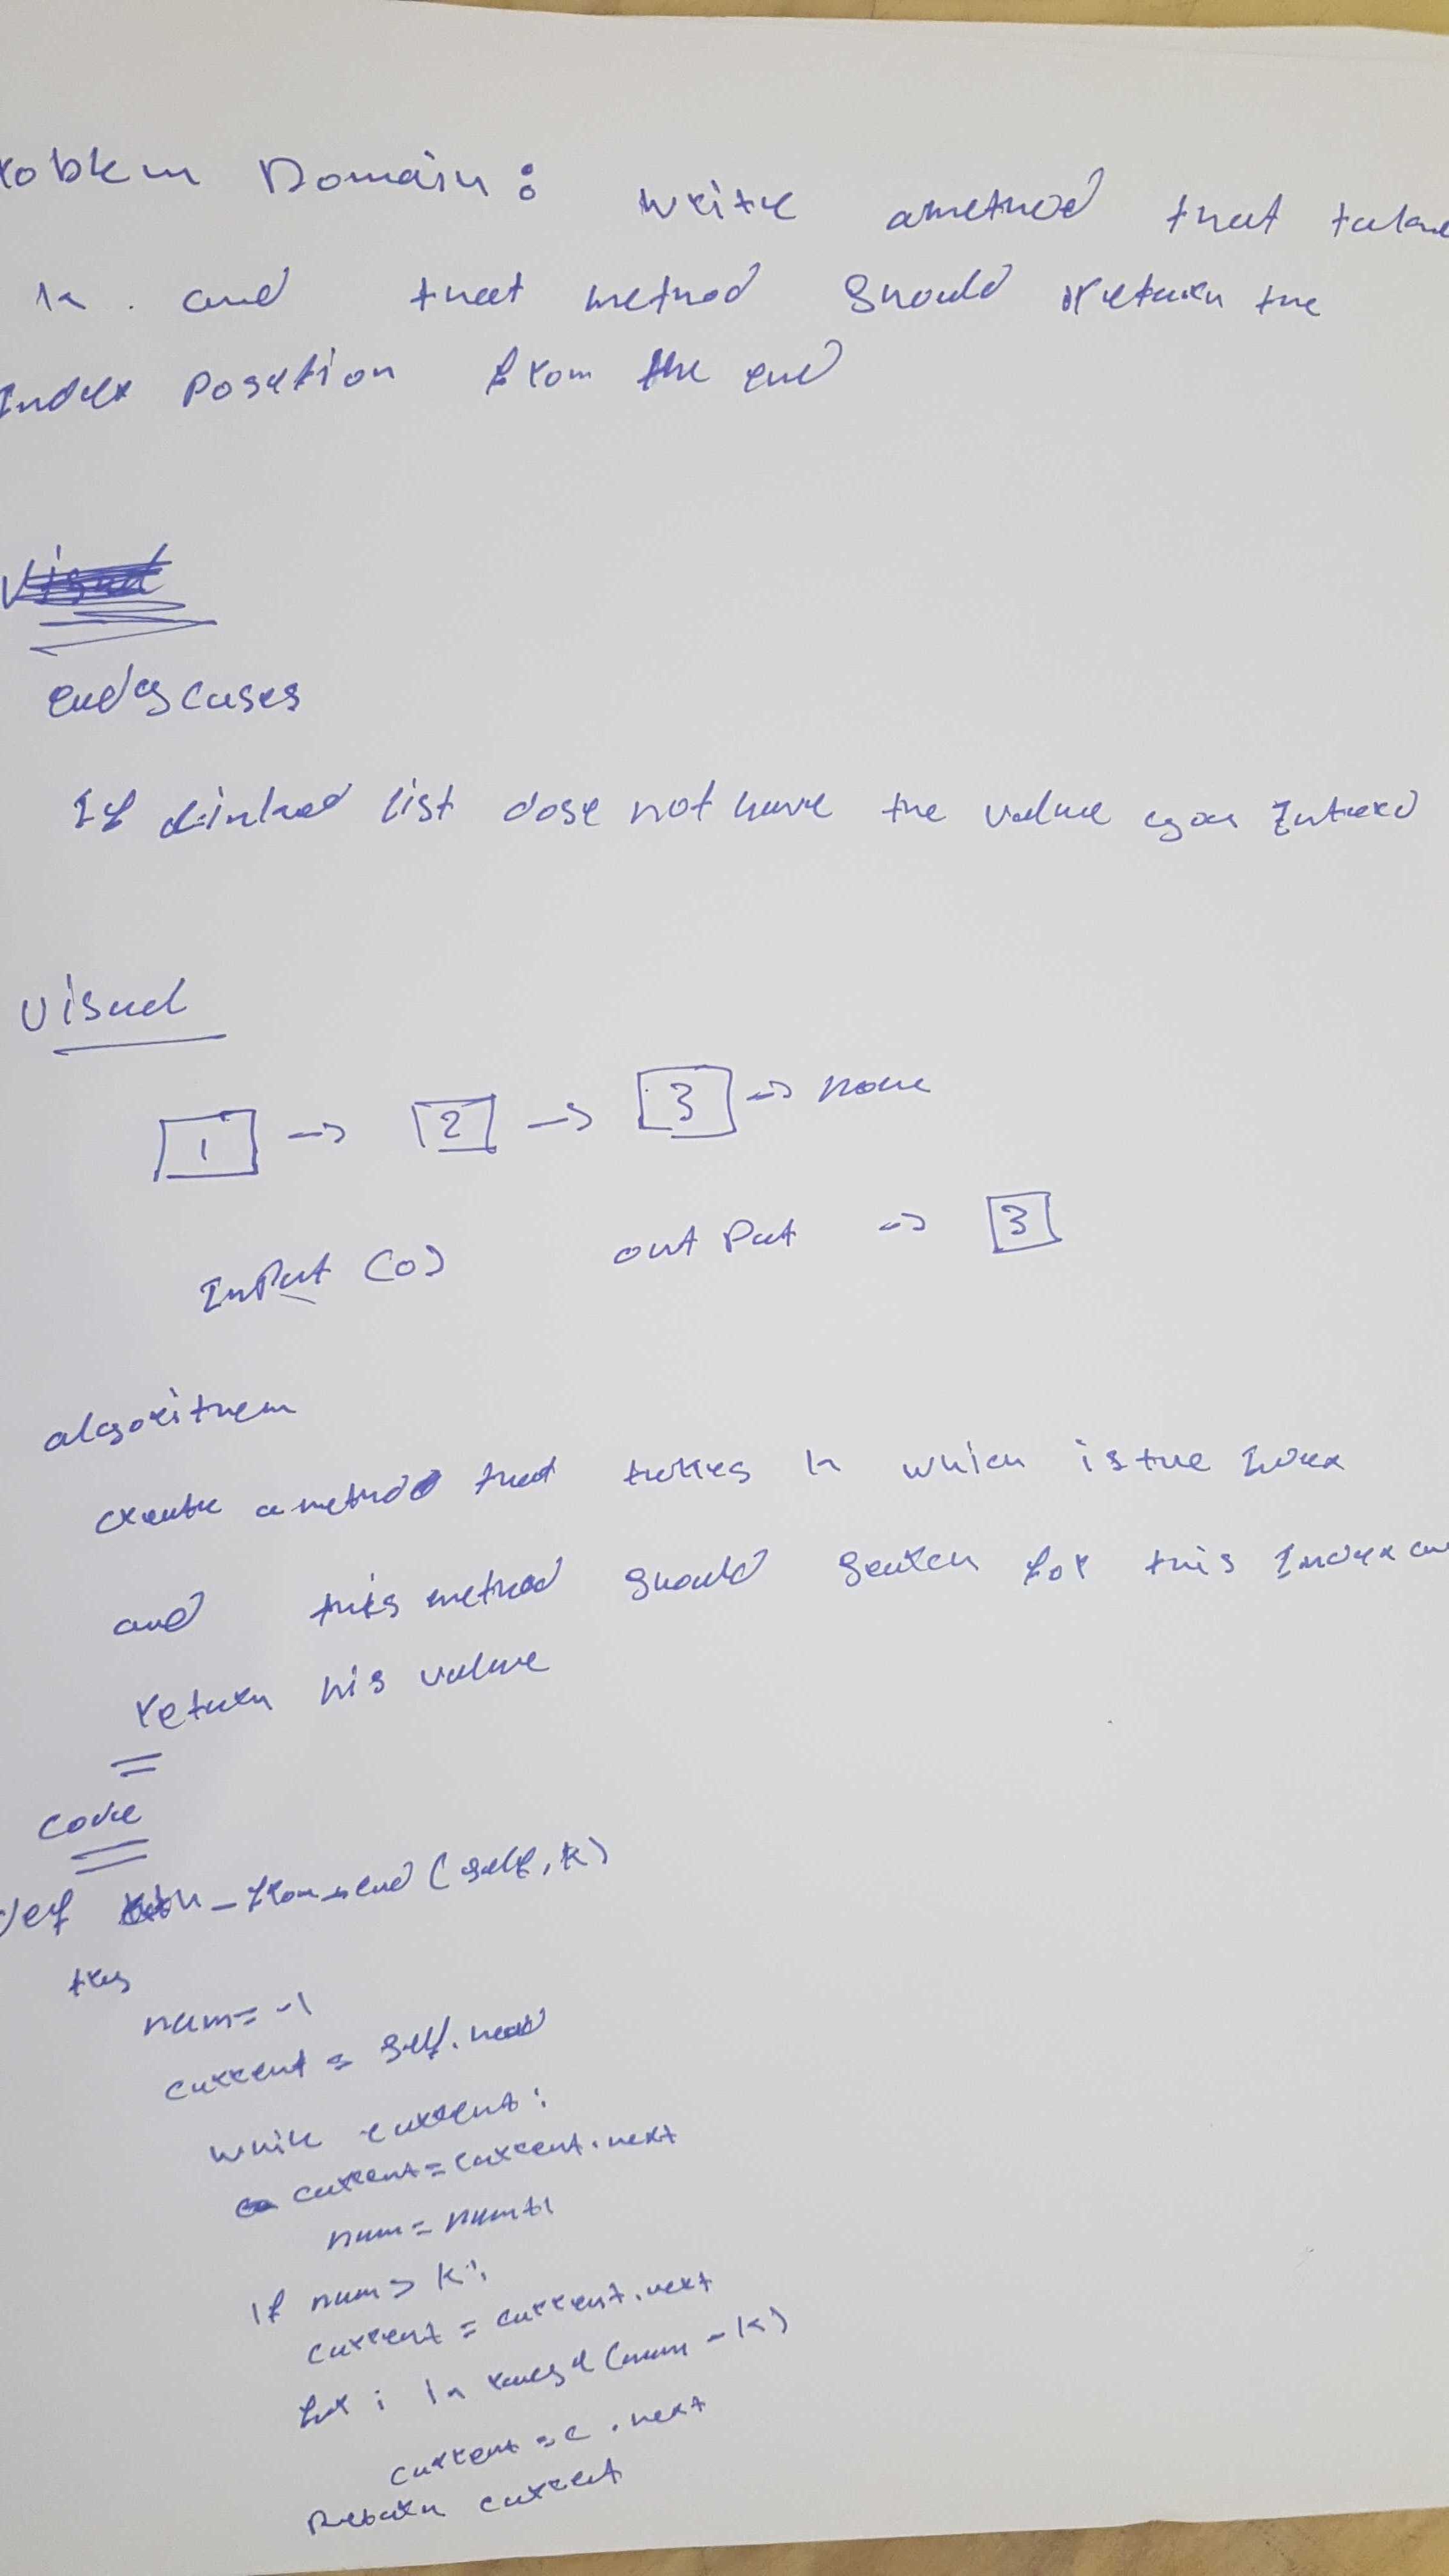 roblem Domain : write a method that take
k . and that method should return the
Index Position from the end
Visual
cases
If Linked list dose not have the value you
visual
1 -> 2 -> 3 -> none
InPut (0) out Put -> 3
algorithem
create a method that takes k which is the Index
and this method should search for this Index an
return his value
code
def kth_from_end (self, k)
try
num = -1
current = self.head
while current :
current = current.next
num = num+1
If num > k :
current = current.next
for i In range (num - k)
current = c . next
Return current